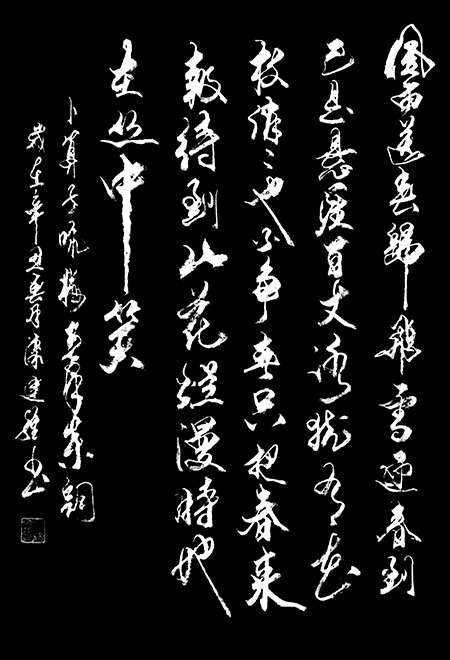 風雨送春歸飛雪迎春到
已是懸崖百丈冰猶有花
枝俏〻也不爭春只把春來
報待到山花爛漫時她
在丛中笑
卜算子咏梅毛澤東詞
歲在辛丑春月陳建书